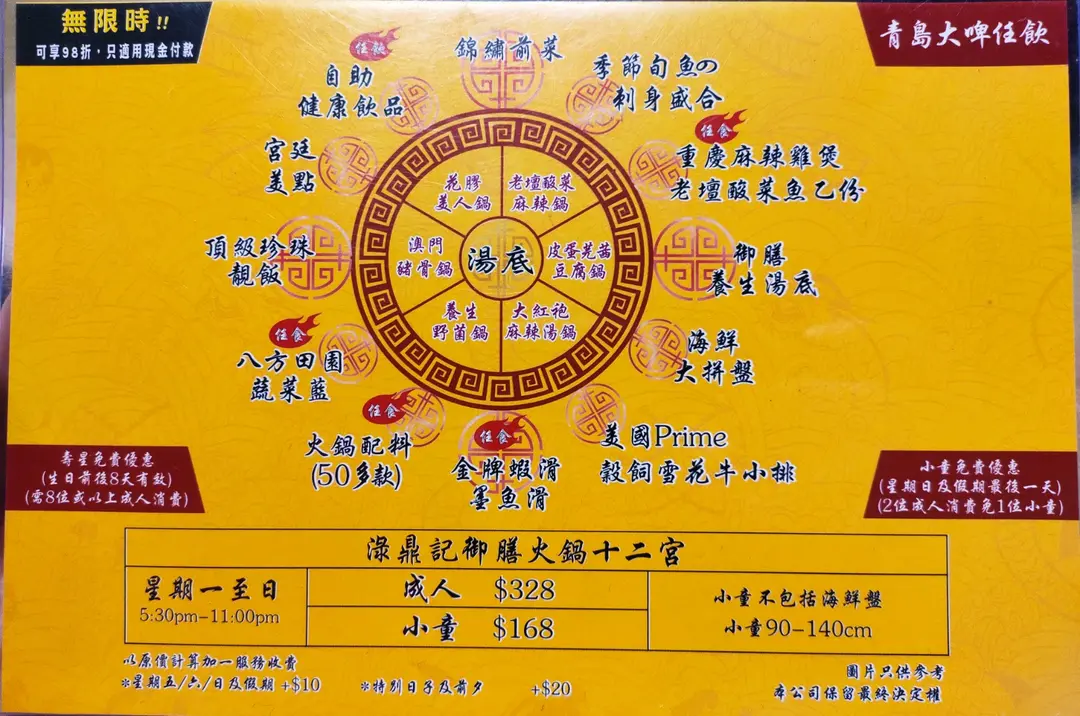 無限時!!
可享98折，只適用現金付款
青島大啤任飲
任飲
自助
健康飲品
錦繡前菜
季節旬魚の
刺身盛合
任食
重慶麻辣雞煲
老壇酸菜魚乙份
宮廷
美點
頂級珍珠
靚飯
御膳
養生湯底
花膠
美人鍋
老壇酸菜
麻辣鍋
澳門
豬骨鍋
湯底
皮蛋芫茜
豆腐鍋
養生
野菌鍋
大紅袍
麻辣湯鍋
任食
八方田園
蔬菜籃
海鮮
大拼盤
任食
火鍋配料
(50多款)
任食
金牌蝦滑
墨魚滑
美國Prime
穀飼雪花牛小排
壽星免費優惠
(生日前後8天有效)
(需8位或以上成人消費)
小童免費優惠
(星期日及假期最後一天)
(2位成人消費免1位小童)
淥鼎記御膳火鍋十二宮
星期一至日
5:30pm-11:00pm
成人 $328
小童 $168
小童不包括海鮮盤
小童90-140cm
以原價計算加一服務收費
*星期五/六/日及假期 +$10 *特別日子及前夕 +$20
圖片只供參考
本公司保留最終決定權